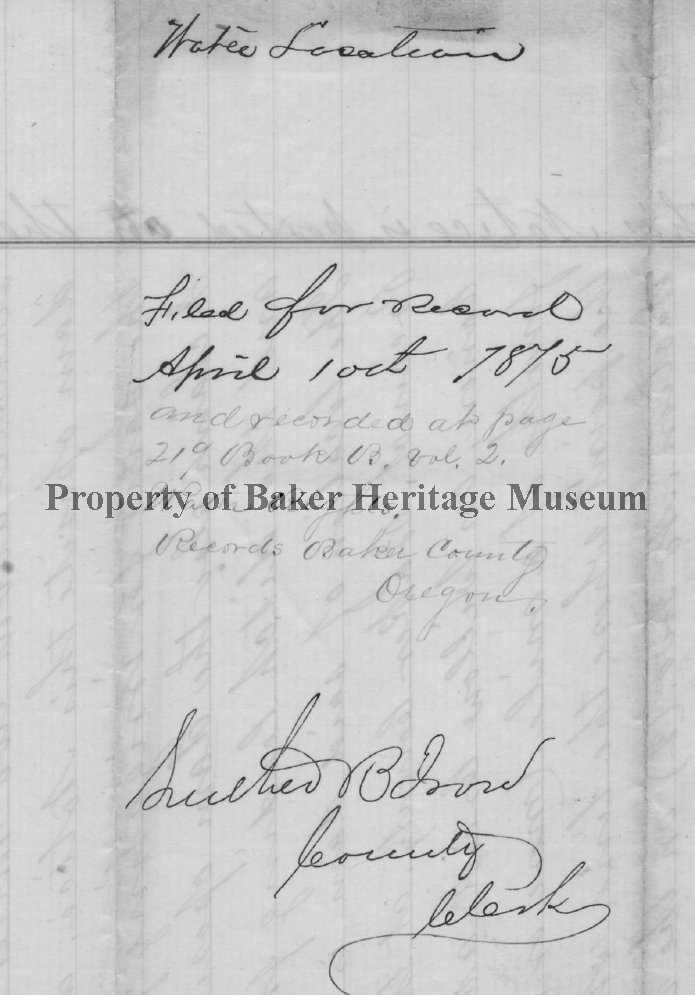 Water Location
Filed for Record
April 10th 1875
and recorded at page
219 Book B. vol. 2.
Property of Baker Heritage Museum
Water
Records Baker County
Oregon.
Luther B Ison
County
Clerk